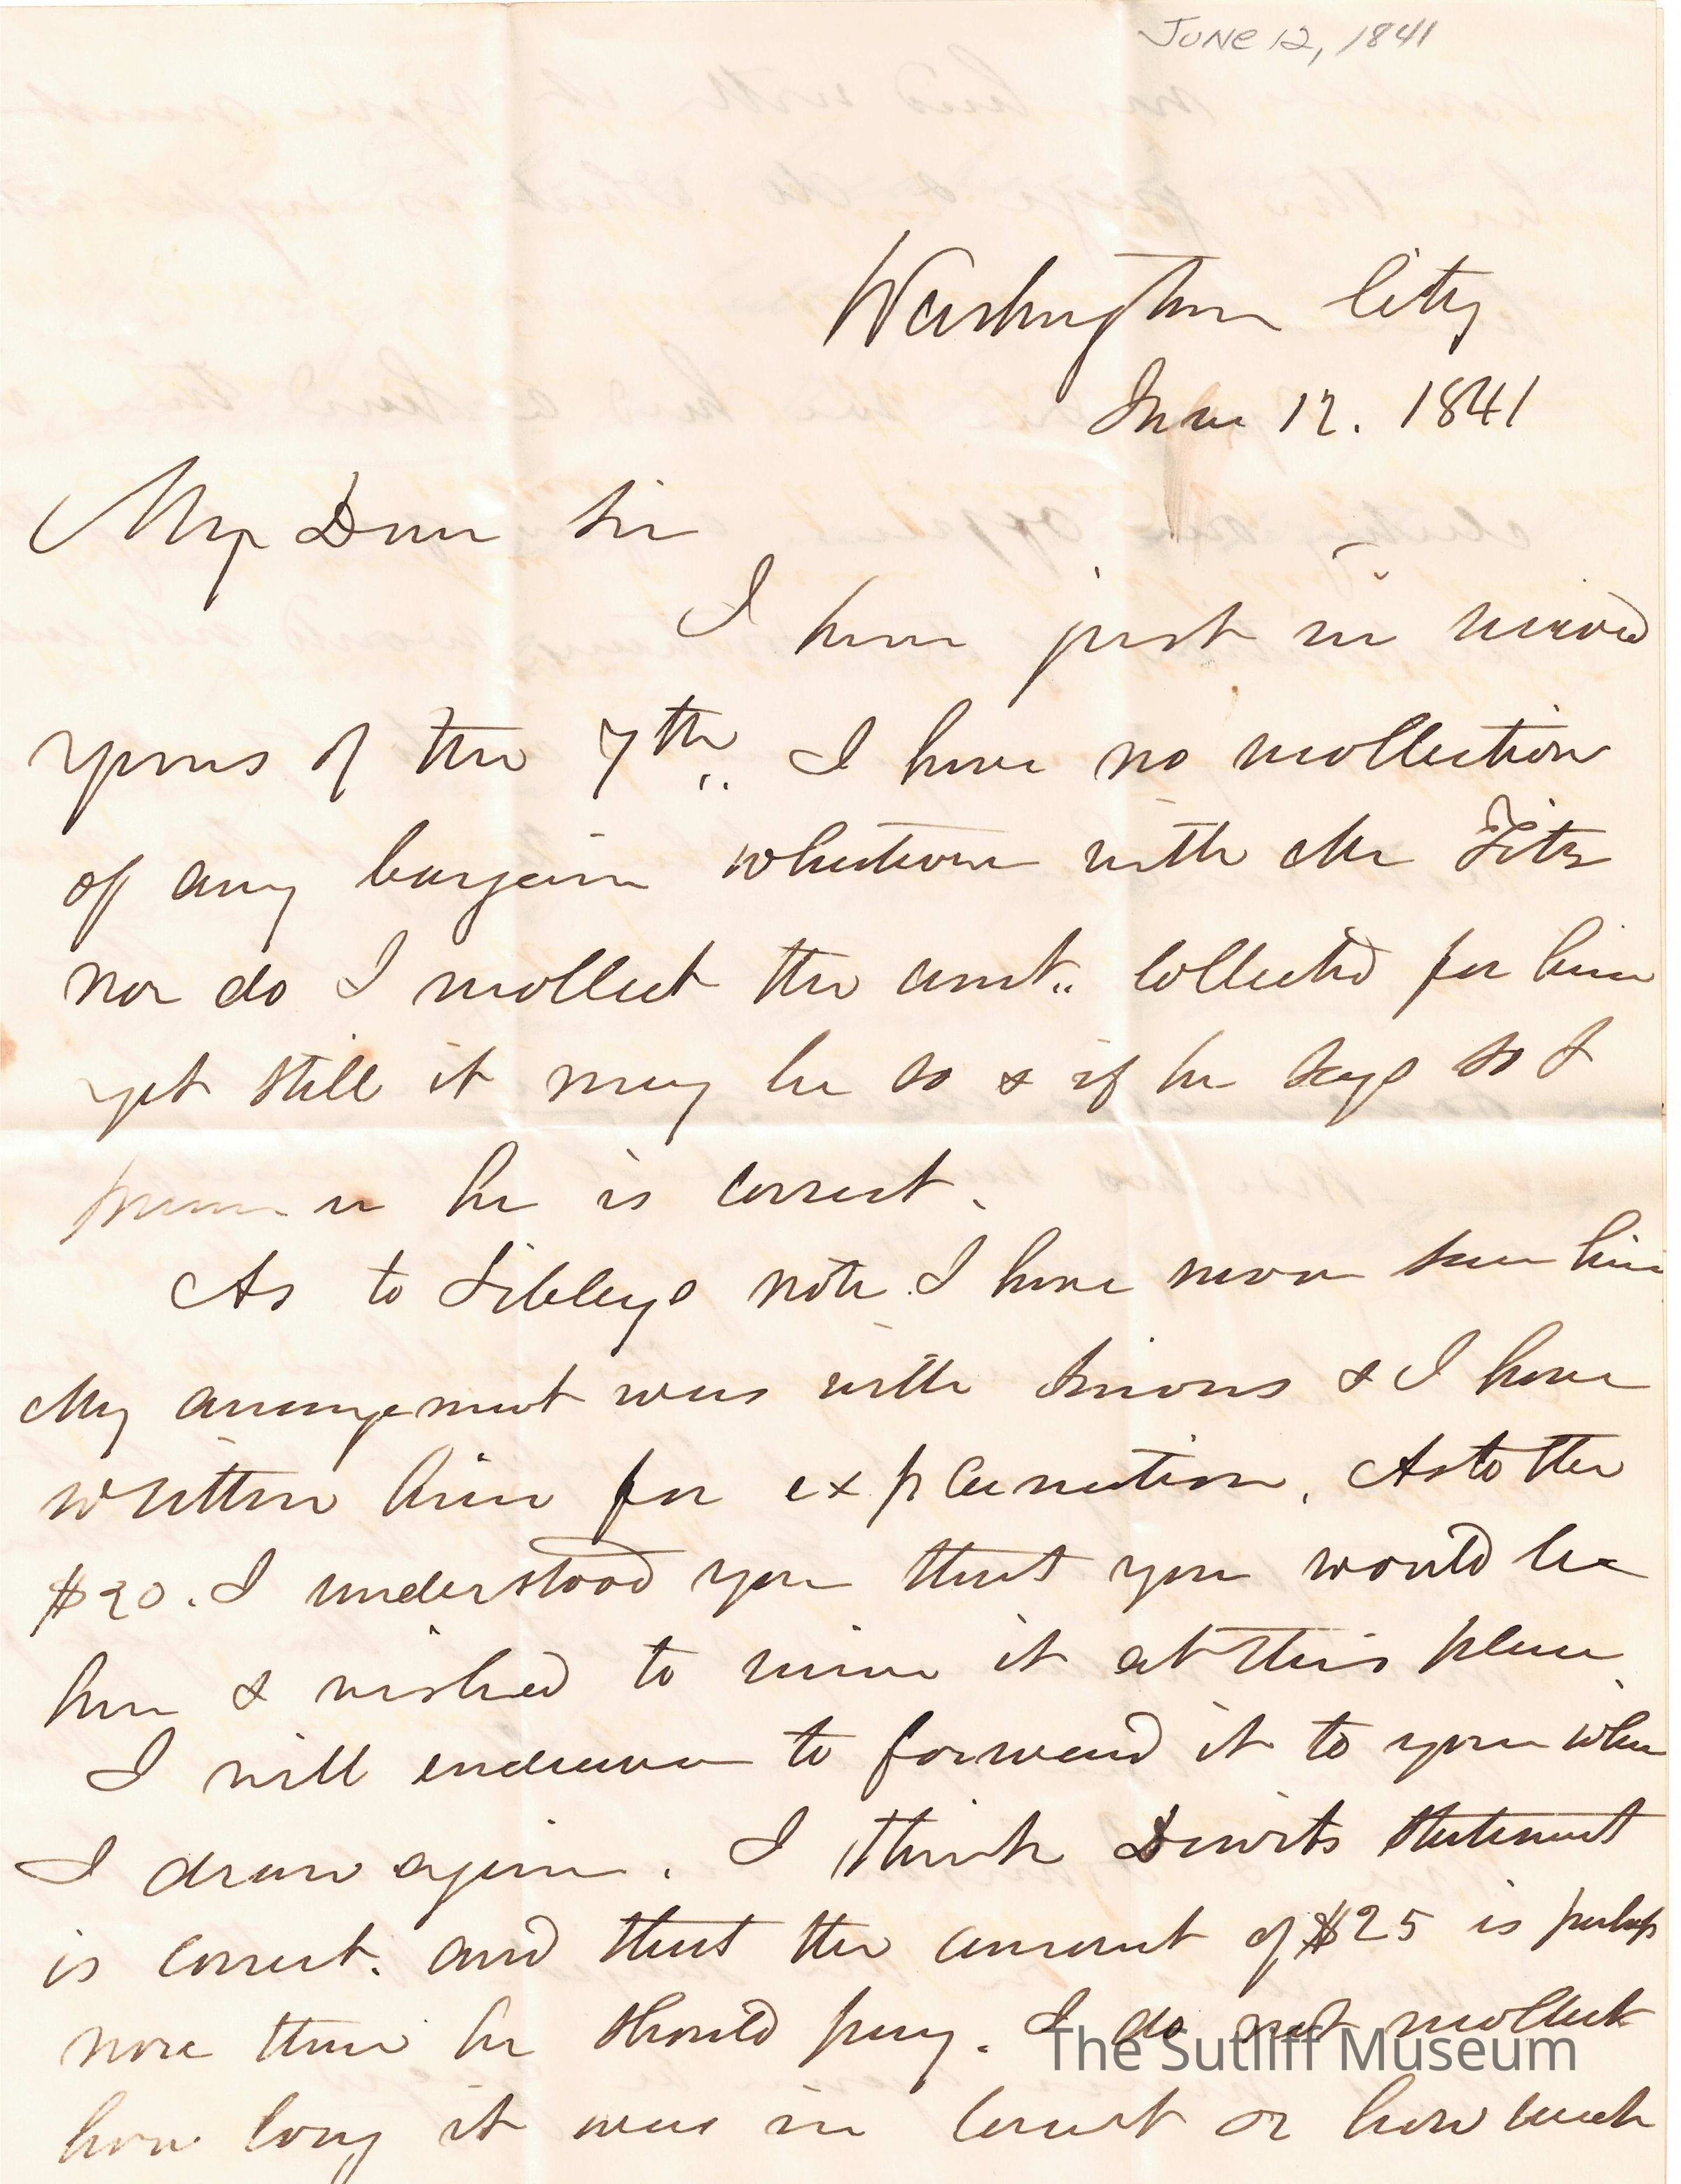 JUNE 12, 1841
Washington City
June 12. 1841
My Dear Sir
I have just received
yours of the 7th.. I have no recollection
of any bargain whatever with Mr Fitz
nor do I recollect the amt.. collected for him
yet still it may be so & if he says so I
presume he is correct.
As to Sibleys note. I have never seen him
My arrangement was with Simons & I have
written him for explanation. As to the
$20. I understood you that you would be
here & wished to receive it at this place.
I will endeavor to forward it to you when
I draw again. I think Dewits statement
is correct. and that the amount of $25 is perhaps
more than he should pay. I do not recollect
how long it was in Court or how much
The Sutliff Museum